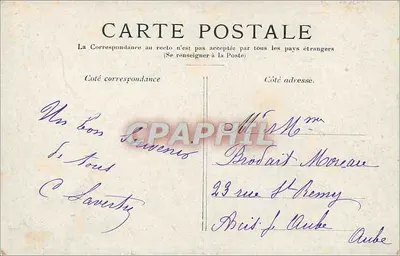 CARTE POSTALE
La Correspondance au recto n'est pas acceptée par tous les pays étrangers
(Se renseigner à la Poste)
Côté correspondance
Côté adresse.
Un bon Souvenir
de tous
C
Mr Mme
Brodait Moreau
23 rue St Remy
Arcis s/ Aube
Aube
CPARAMA